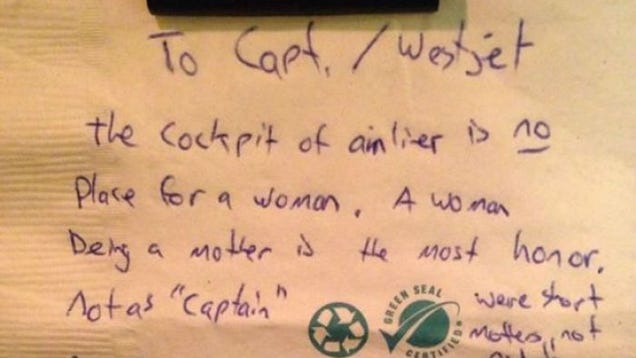 To Capt. / Westjet
the cockpit of airliner is no
Place for a woman. A woman
Being a mother is the most honor.
Not as "captain"
GREEN SEAL
CERTIFIED
were short
mothers, not